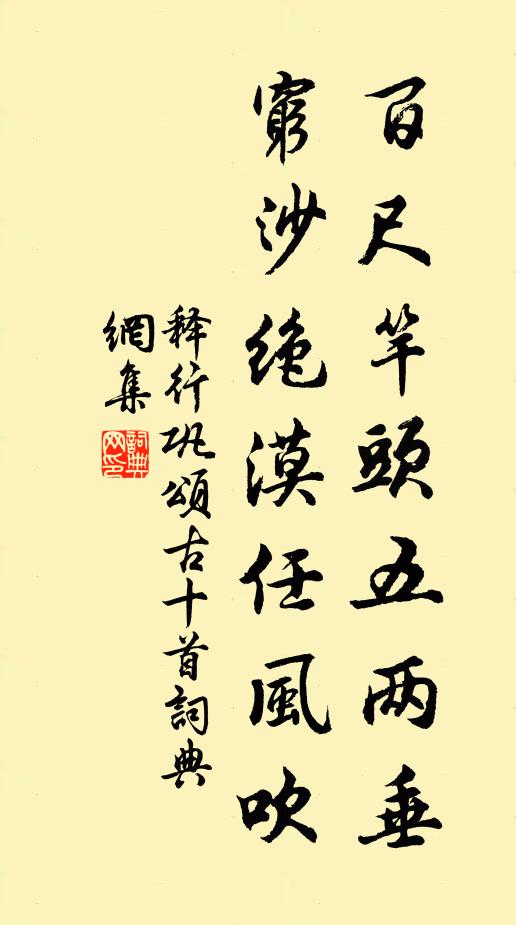 百尺竿頭五两垂
窮沙絶漠任風吹
释行巩頌古十首詞典
網集
詞典網印